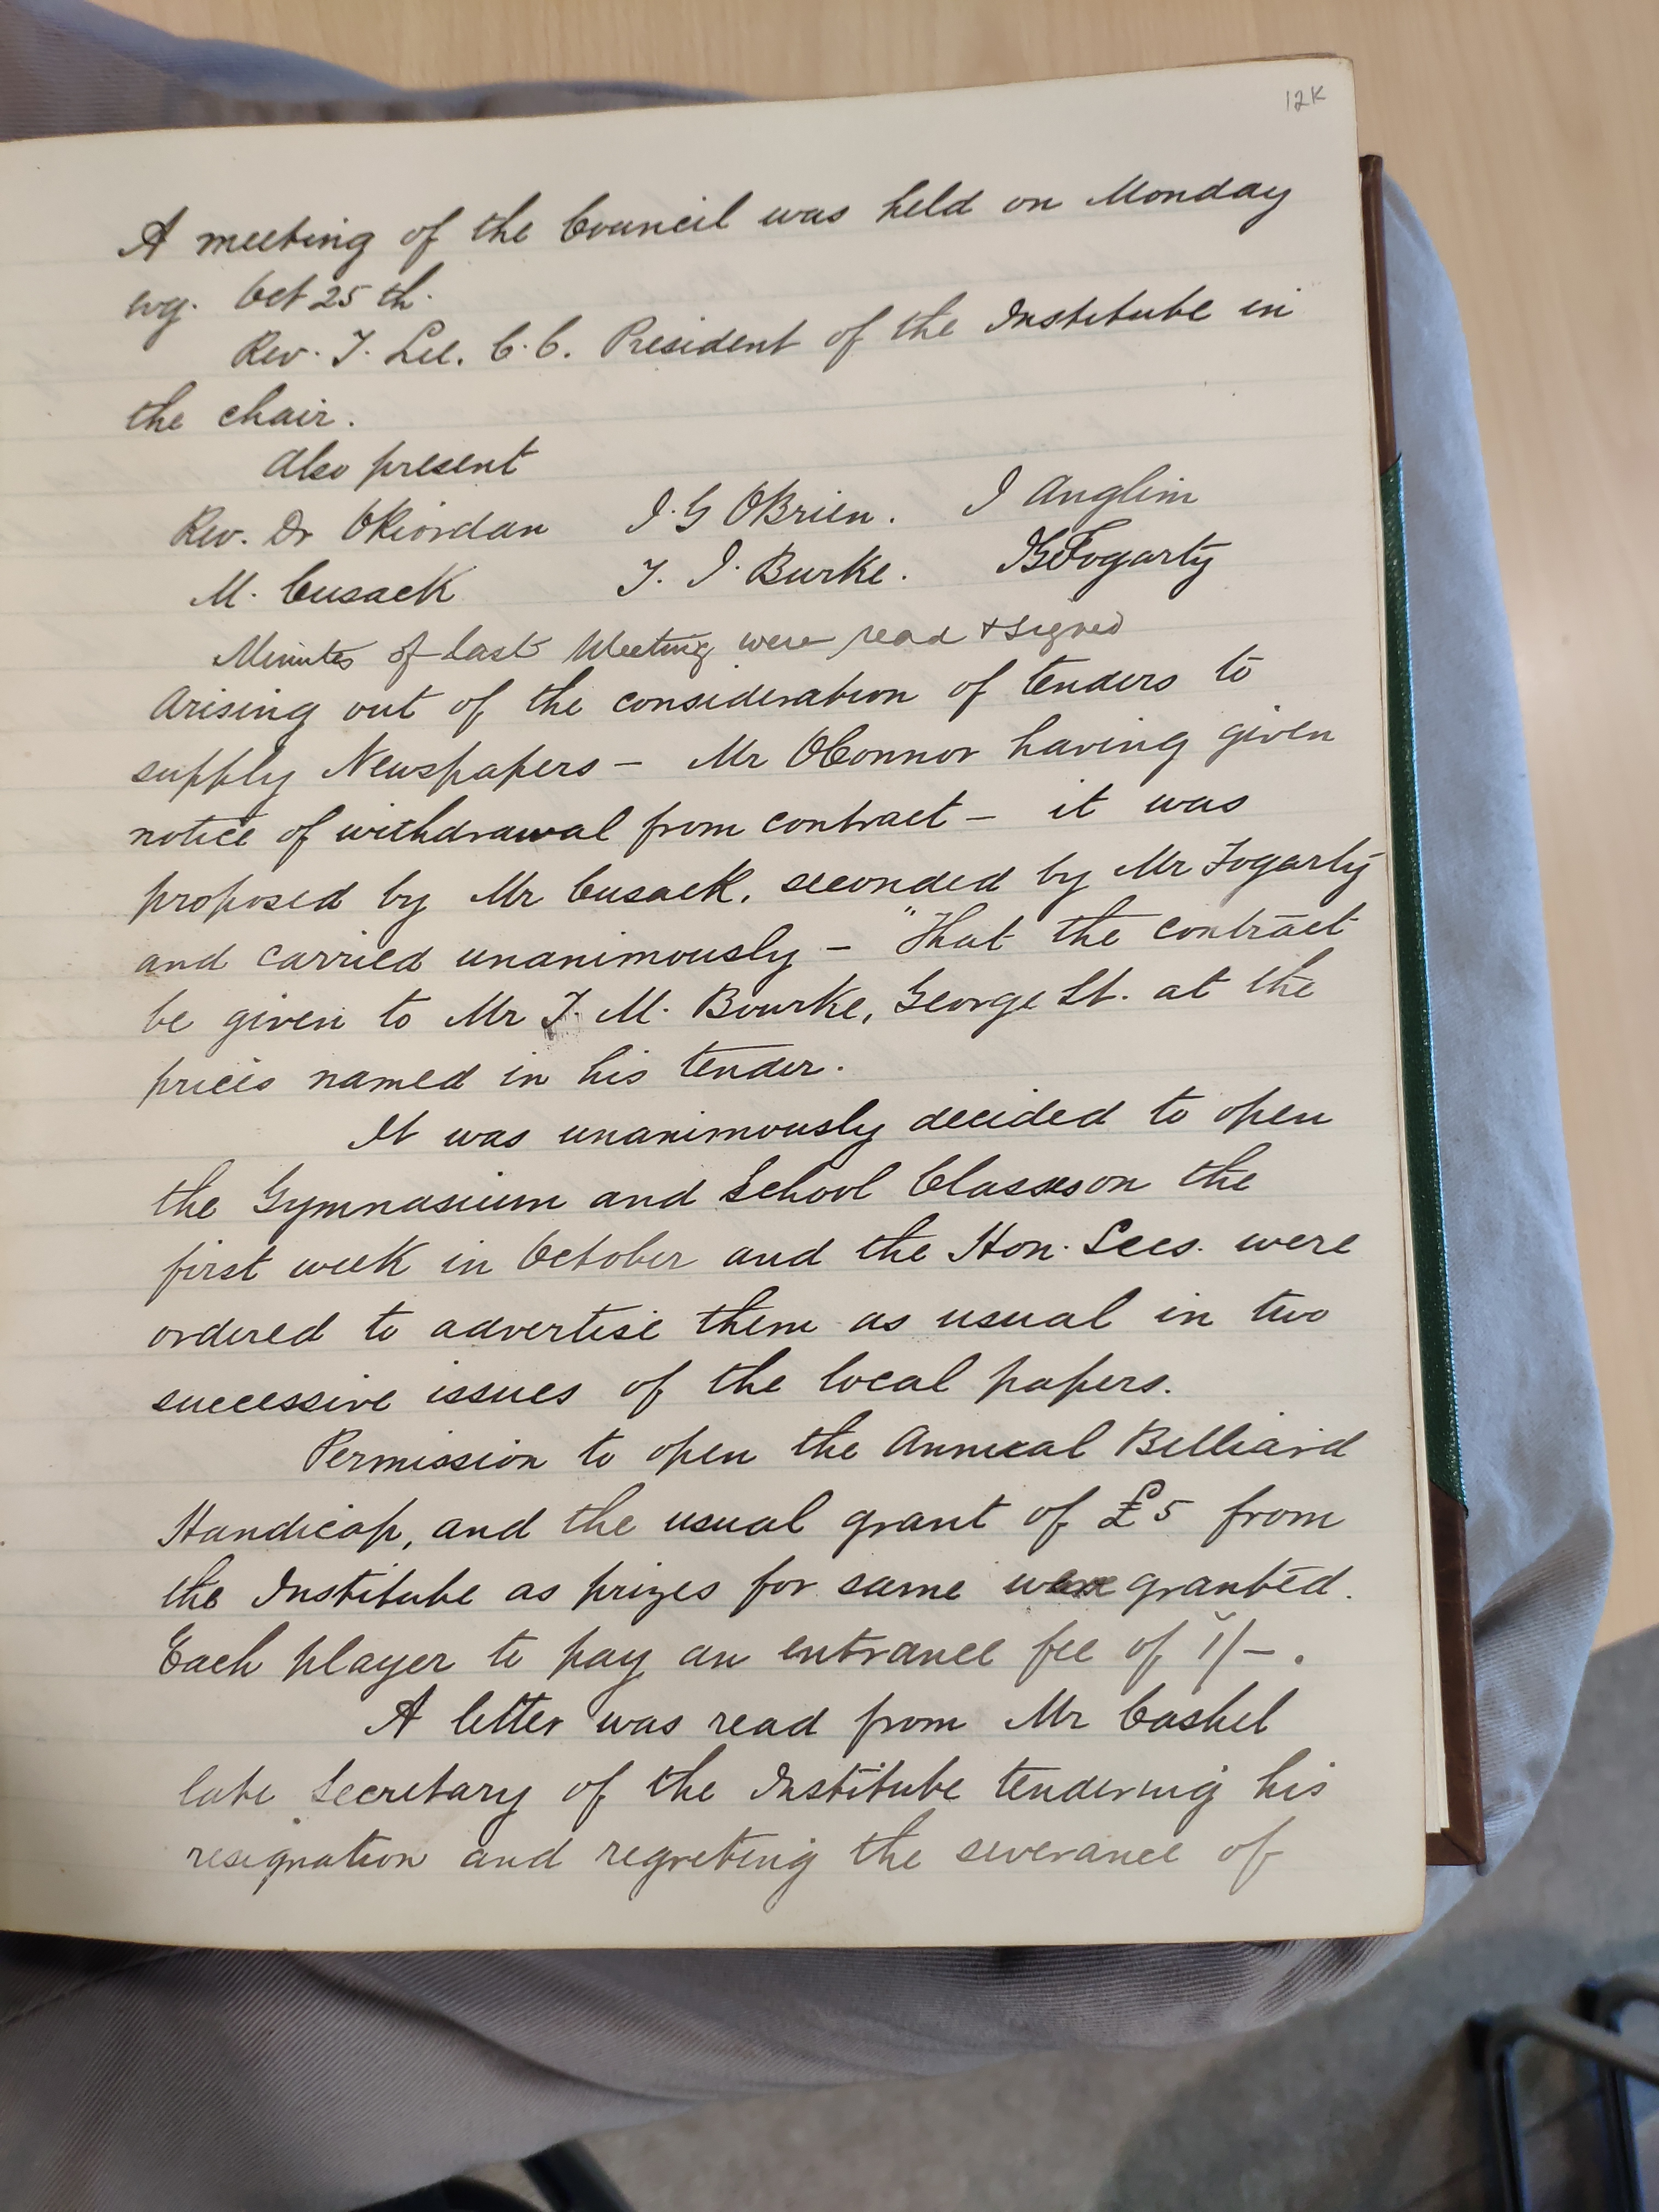 12K
A meeting of the Council was held on Monday
evg. Oct 25th.
Rev. T. Lee. C.C. President of the Institute in
the chair.
Also present
Rev. Dr O'Riordan J.G O'Brien. J Anglim
M. Cusack T. J. Burke. Fogarty
Minutes of last Meeting were read & signed
Arising out of the consideration of tenders to
supply Newspapers – Mr O'Connor having given
notice of withdrawal from contract – it was
proposed by Mr Cusack, seconded by Mr Fogarty
and carried unanimously – "That the contract
be given to Mr J. M. Bourke, George St. at the
prices named in his tender.
It was unanimously decided to open
the Gymnasium and School Classes on the
first week in October and the Hon. Secs. were
ordered to advertise them as usual in two
successive issues of the local papers.
Permission to open the Annual Billiard
Handicap, and the usual grant of £5 from
the Institute as prizes for same were granted.
Each player to pay an entrance fee of 1/-.
A letter was read from Mr Cashel
late Secretary of the Institute tendering his
resignation and regreting the severance of